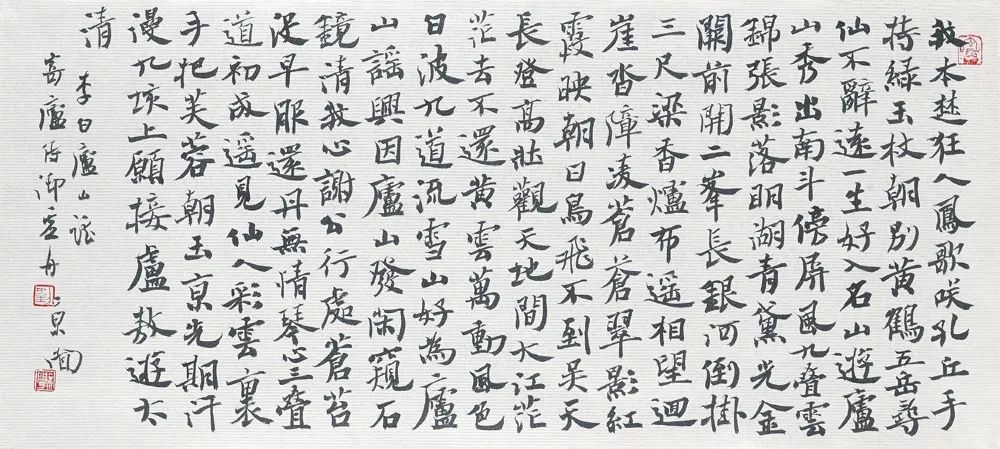 我本楚狂人鳳歌咲孔丘手
持綠玉杖朝別黃鶴五岳尋
仙不辭遠一生好入名山遊廬
山秀出南斗傍屏風九叠雲
錦張影落明湖青黛光金
關前開二峯長銀河倒掛
三尺梁香爐布遥相望迴
崖沓障凌蒼蒼翠影紅
霞映朝日鳥飛不到吳天
長登高壯觀天地間大江茫
茫去不還黃雲萬動風色
日波九道流雪山好為廬
山謠興因廬山發閑窺石
鏡清我心謝公行處蒼苔
没早服還丹無情琴心三叠
道初成遥見仙人彩雲裏
手把芙蓉朝玉京先期汗
漫九垓上願接盧敖遊太
清
李白廬山謡
寄廬侍御虚舟